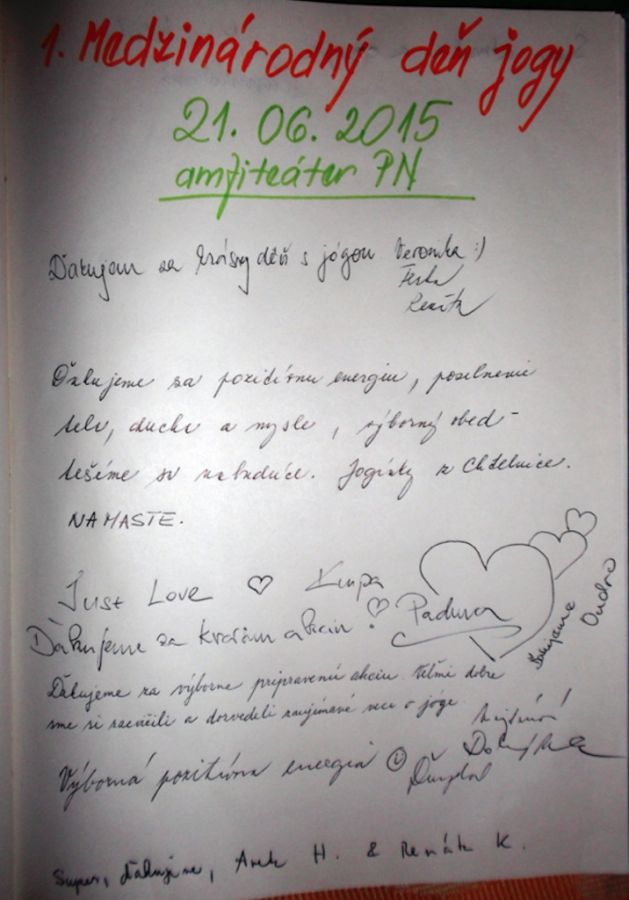 1. Medzinárodný deň jogy
21. 06. 2015
amfiteáter PN
Ďakujem za krásny deň s jógou Veronika :)
Ďakujeme za pozitívnu energiu, posilnenie
tela, ducha a mysle, výborný obed -
tešíme sa nabudúce. Jogínky z Chtelnice.
NAMASTE.
Just Love
Ďakujeme za krásnu akciu!
Ďakujeme
Ďakujeme za výborne pripravenú akciu. Veľmi dobre
sme si zacvičili a dozvedeli zaujímavé veci o jóge
Výborná pozitívna energia
Super, ďakujeme, H. & Renáta K.